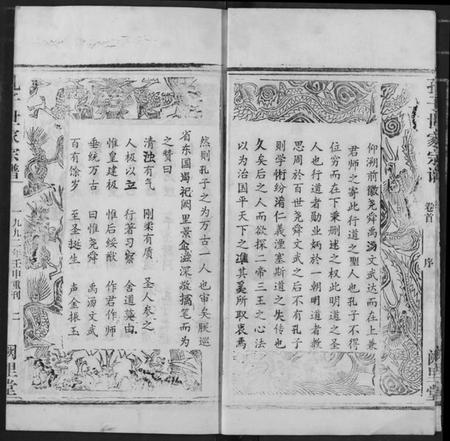 孔子世家宗谱
卷首
序
阙里堂
仰溯前徽尧舜禹汤文武达而在上兼
君师之寄此行道之聖人也孔子不得
位穷而在下秉删述之权此明道之圣
人也行道者勋业炳於一朝明道者教
思周於百世尧舜文武之后不有孔子
则学術纷淆仁義湮塞斯道之失传也
久矣后之人而欲探二帝三王之心法
以为治国平天下之准其奚所取衷焉
然则孔子之为万古一人也审矣朕巡
省东国谒祀阙里景企滋深敬摛笔而为
之赞曰
清浊有气 刚柔有质 圣人参之
人极以立 行著习察 舍道莫由
惟皇建极 惟后绥猷 作君作师
垂统万古 曰惟尧舜 禹汤文武
百有馀岁 至圣挺生 声金振玉
孔子世家宗谱
一九九二年壬申重刊
二
阙里堂